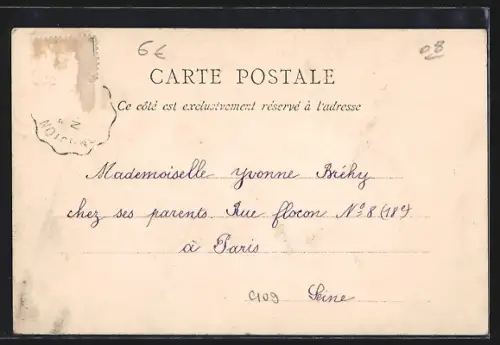 6€
08
CARTE POSTALE
Ce côté est exclusivement réservé à l'adresse
Mademoiselle Yvonne Bréhy
chez ses parents Rue flocon Nº 8 (18e)
à Paris
C109 Seine